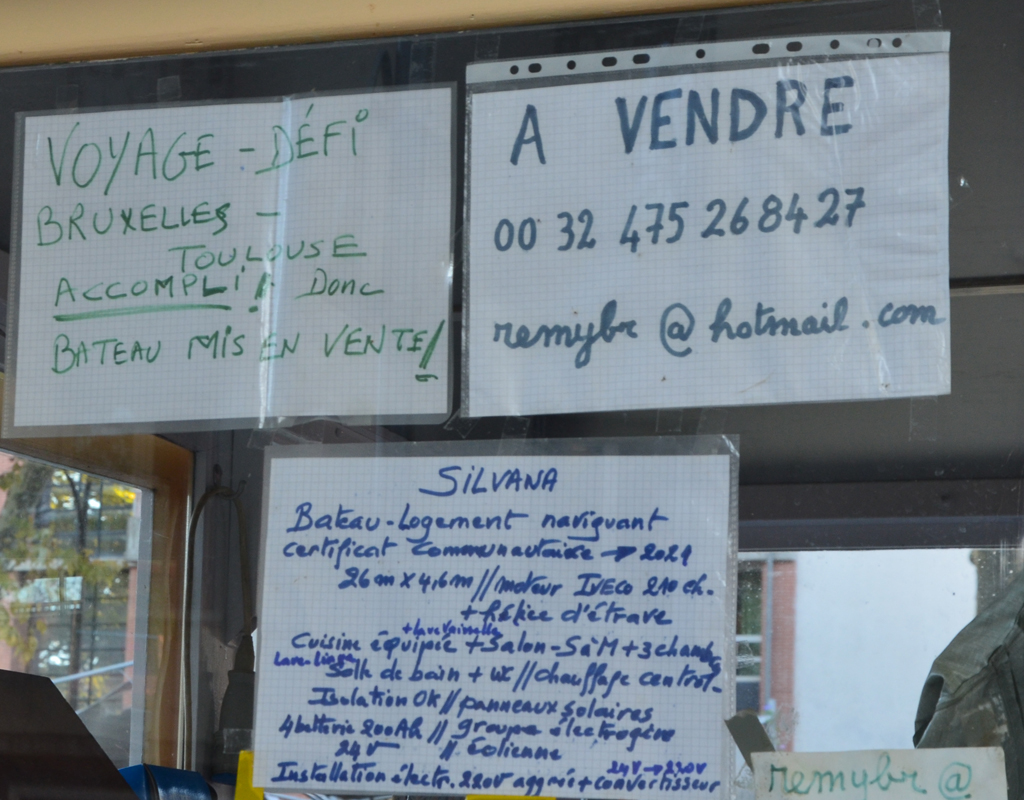 VOYAGE - DÉFI
BRUXELLES -
TOULOUSE
ACCOMPLI ! Donc
BATEAU MIS EN VENTE !
A VENDRE
00 32 475 268427
remybr @ hotmail . com
SILVANA
Bateau-Logement naviguant
certificat communautaire → 2021
26m x 4,6m // moteur IVECO 210 ch.
+ hélice d'étrave
+ lave vaisselle
Cuisine équipée + Salon-SàM + 3 chambres
Lave-linge
Salle de bain + wc // chauffage central.
Isolation OK // panneaux solaires
4 batterie 200Ah // groupe électrogène
24V // éolienne
24V → 230V
Installation électr. 220V agréé + convertisseur
remybr @